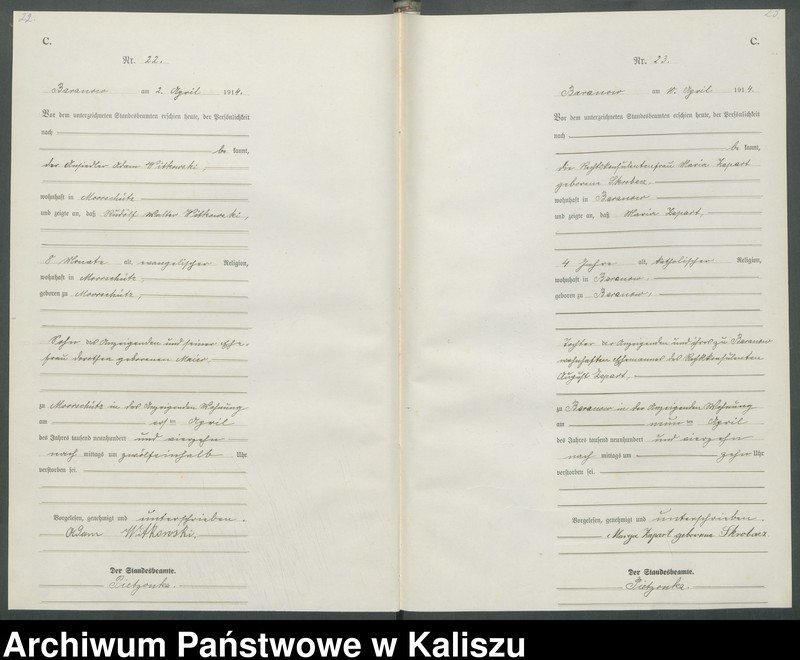 22.
C.
Nr. 22.
Baranow am 2. April 1914.
Vor dem unterzeichneten Standesbeamten erschien heute, der Persönlichkeit
nach
be kannt,
der Ansiedler Adam Witkowski,
wohnhaft in Moorschütz
und zeigte an, daß Rudolf Walter Witkowski,
8 Monate alt, evangelischer Religion,
wohnhaft in Moorschütz,
geboren zu Moorschütz,
Sohn des Anzeigenden und seiner Ehe-
frau Dorothea geborenen Maier,
zu Moorschütz in des Anzeigenden Wohnung
am ersten April
des Jahres tausend neunhundert und vierzehn
nach mittags um zwölfeinhalb Uhr
verstorben sei.
Vorgelesen, genehmigt und unterschrieben.
Adam Witkowski.
Der Standesbeamte.
Pietzonka.
23.
C.
Nr. 23.
Baranow am April 1914.
Vor dem unterzeichneten Standesbeamten erschien heute, der Persönlichkeit
nach
be kannt,
die Rechtskonsulentenfrau Maria
geborene
wohnhaft in Baranow
und zeigte an, daß Maria
4 Jahre alt, katholischer Religion,
wohnhaft in Baranow,
geboren zu Baranow,
Tochter der Anzeigenden und ihres zu Baranow
wohnhaften Ehemannes des Rechtskonsulenten
August
zu Baranow in der Anzeigenden Wohnung
am neunten April
des Jahres tausend neunhundert und vierzehn
nach mittags um zehn Uhr
verstorben sei.
Vorgelesen, genehmigt und unterschrieben.
geborene Skrobacz
Der Standesbeamte.
Pietzonka.
Archiwum Państwowe w Kaliszu